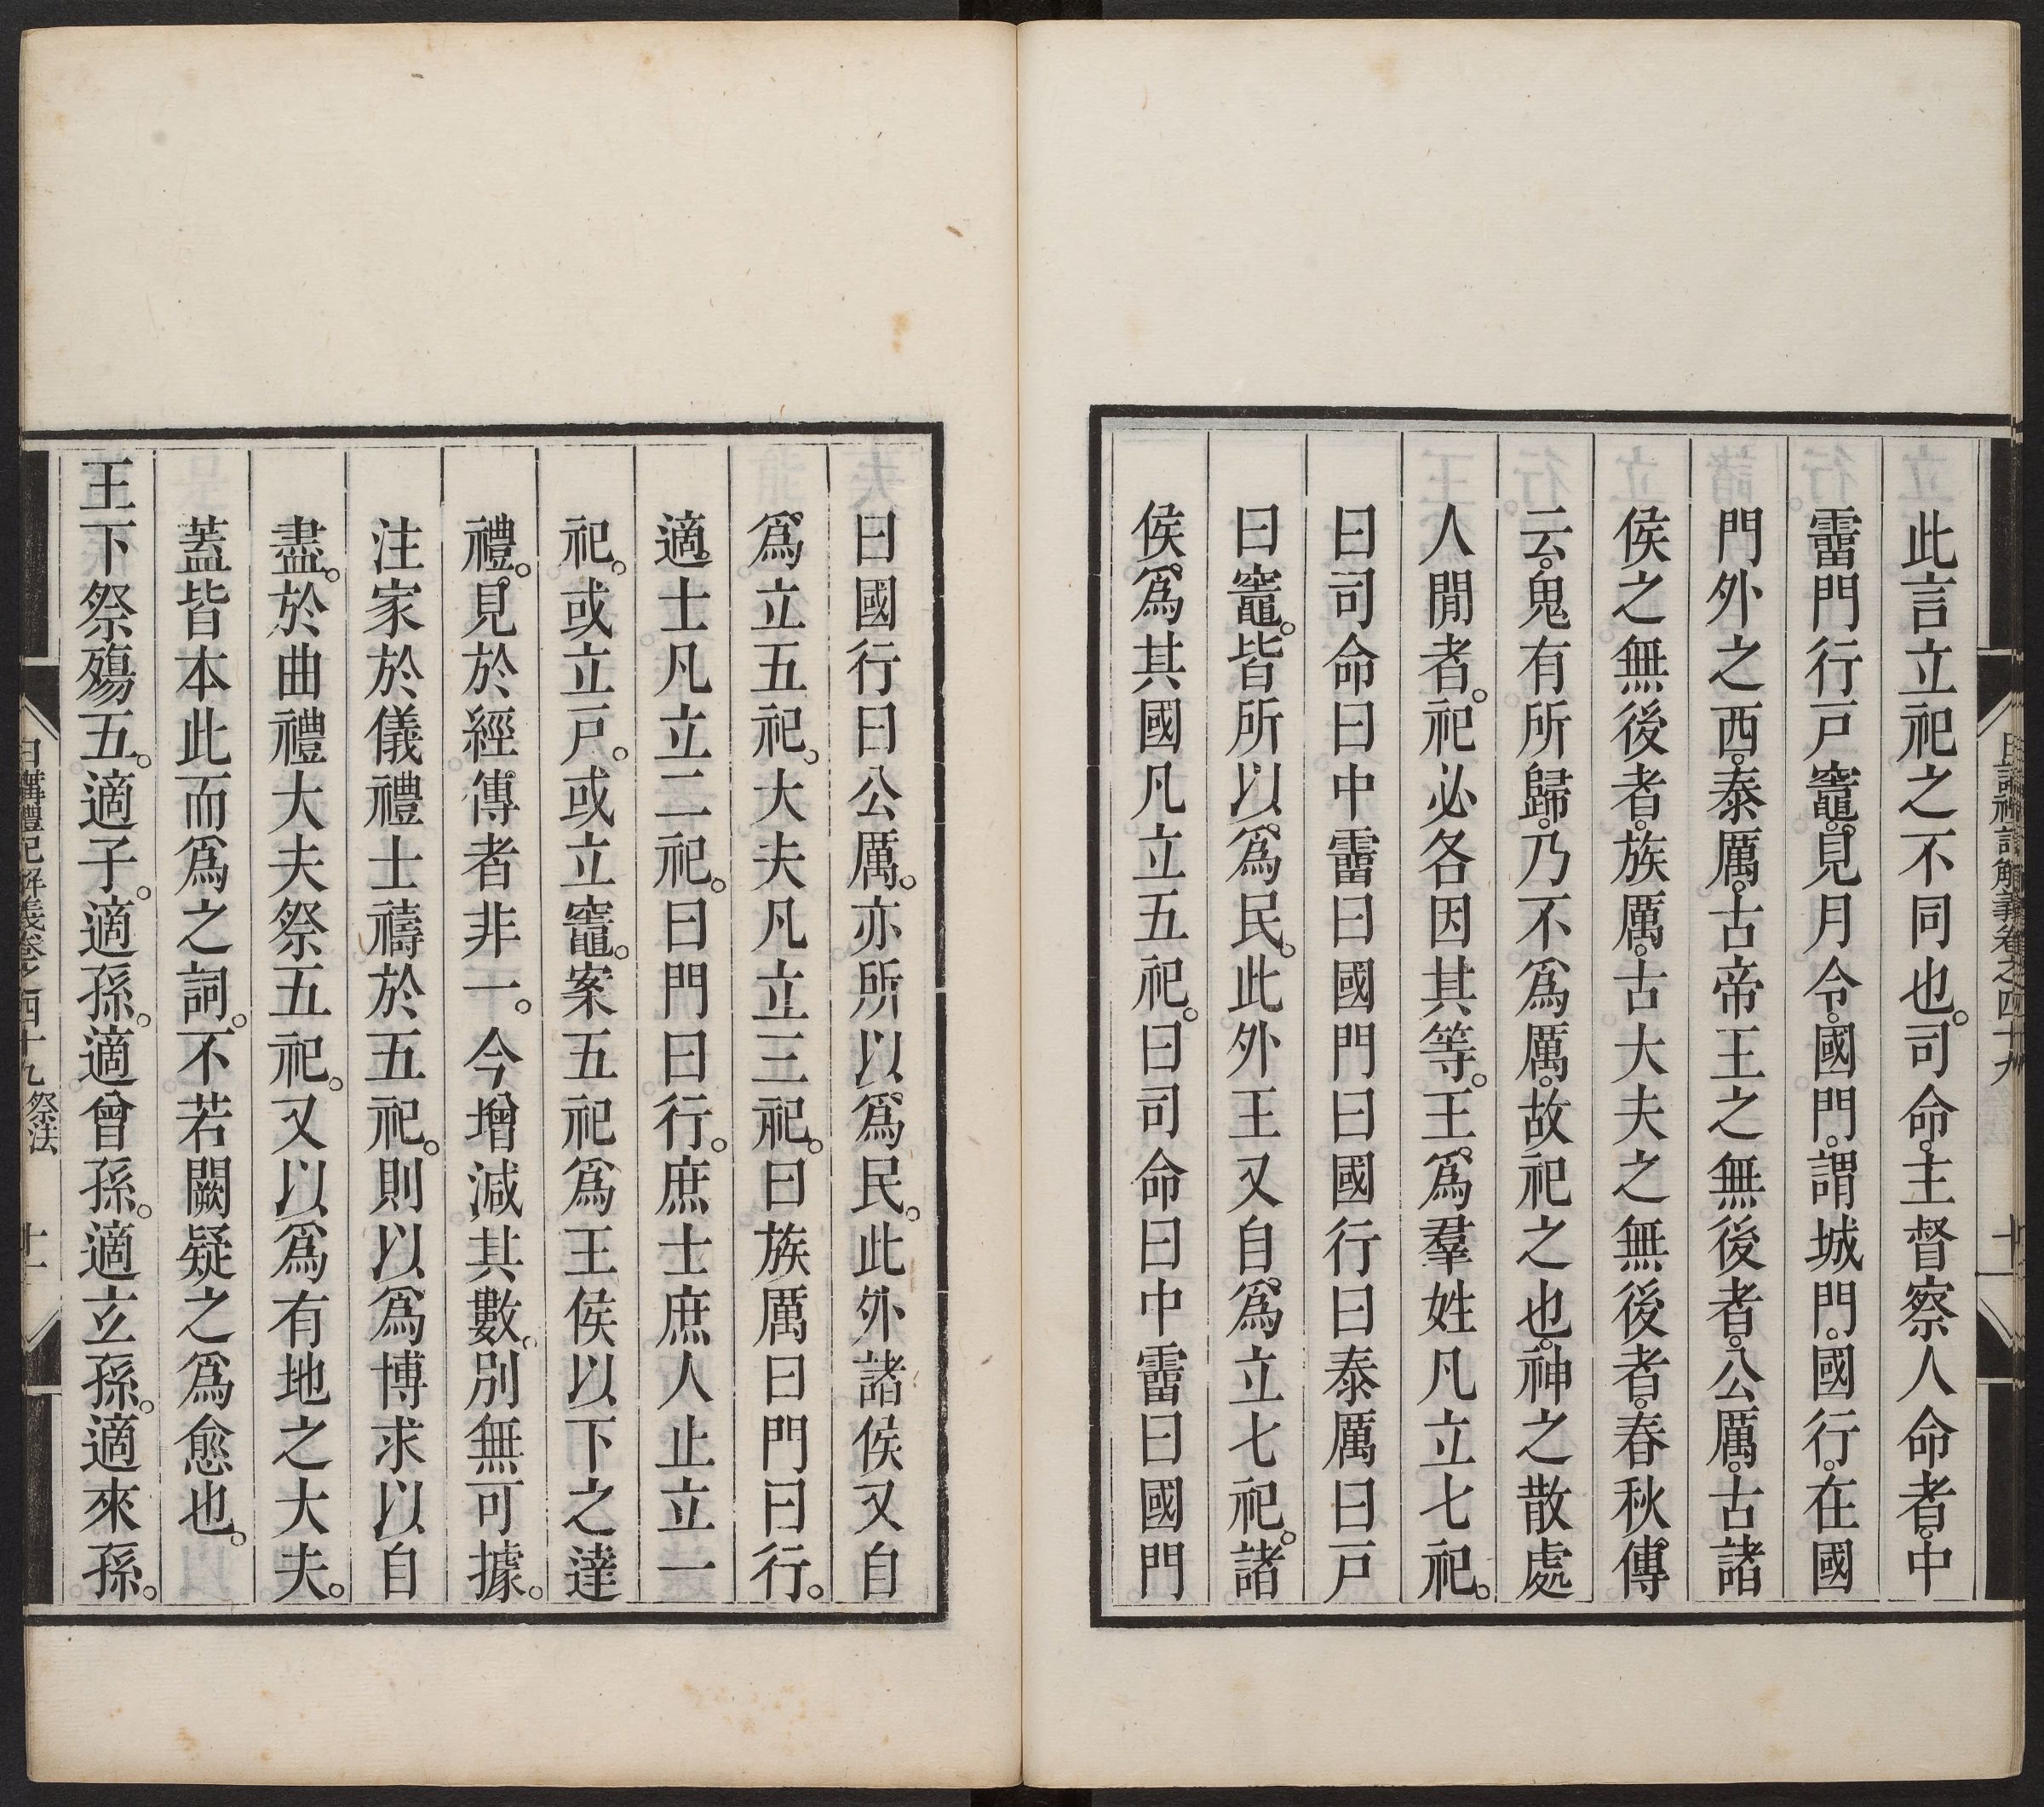 此言立祀之不同也。司命。主督察人命者。中
霤門行戸竈。見月令。國門。謂城門。國行。在國
門外之西。泰厲。古帝王之無後者。公厲。古諸
侯之無後者。族厲。古大夫之無後者。春秋傳
云。鬼有所歸。乃不爲厲。故祀之也。神之散處
人閒者。祀必各因其等。王。爲羣姓凡立七祀。
曰司命曰中霤曰國門曰國行曰泰厲曰戸
曰竈。皆所以爲民。此外王又自爲立七祀。諸
侯爲其國凡立五祀。曰司命曰中霤曰國門
曰國行曰公厲。亦所以爲民。此外諸侯又自
爲立五祀。大夫凡立三祀。曰族厲曰門曰行。
適士凡立二祀。曰門曰行。庶士庶人止立一
祀。或立戸。或立竈。案五祀爲王侯以下之達
禮。見於經傳者非一。今增減其數。別無可據。
注家於儀禮士禱於五祀。則以爲博求以自
盡。於曲禮大夫祭五祀。又以爲有地之大夫。
蓋皆本此而爲之詞。不若闕疑之爲愈也。
王下祭殤五。適子。適孫。適曾孫。適玄孫。適來孫。
日講禮記解義卷之四十九 祭法 十一